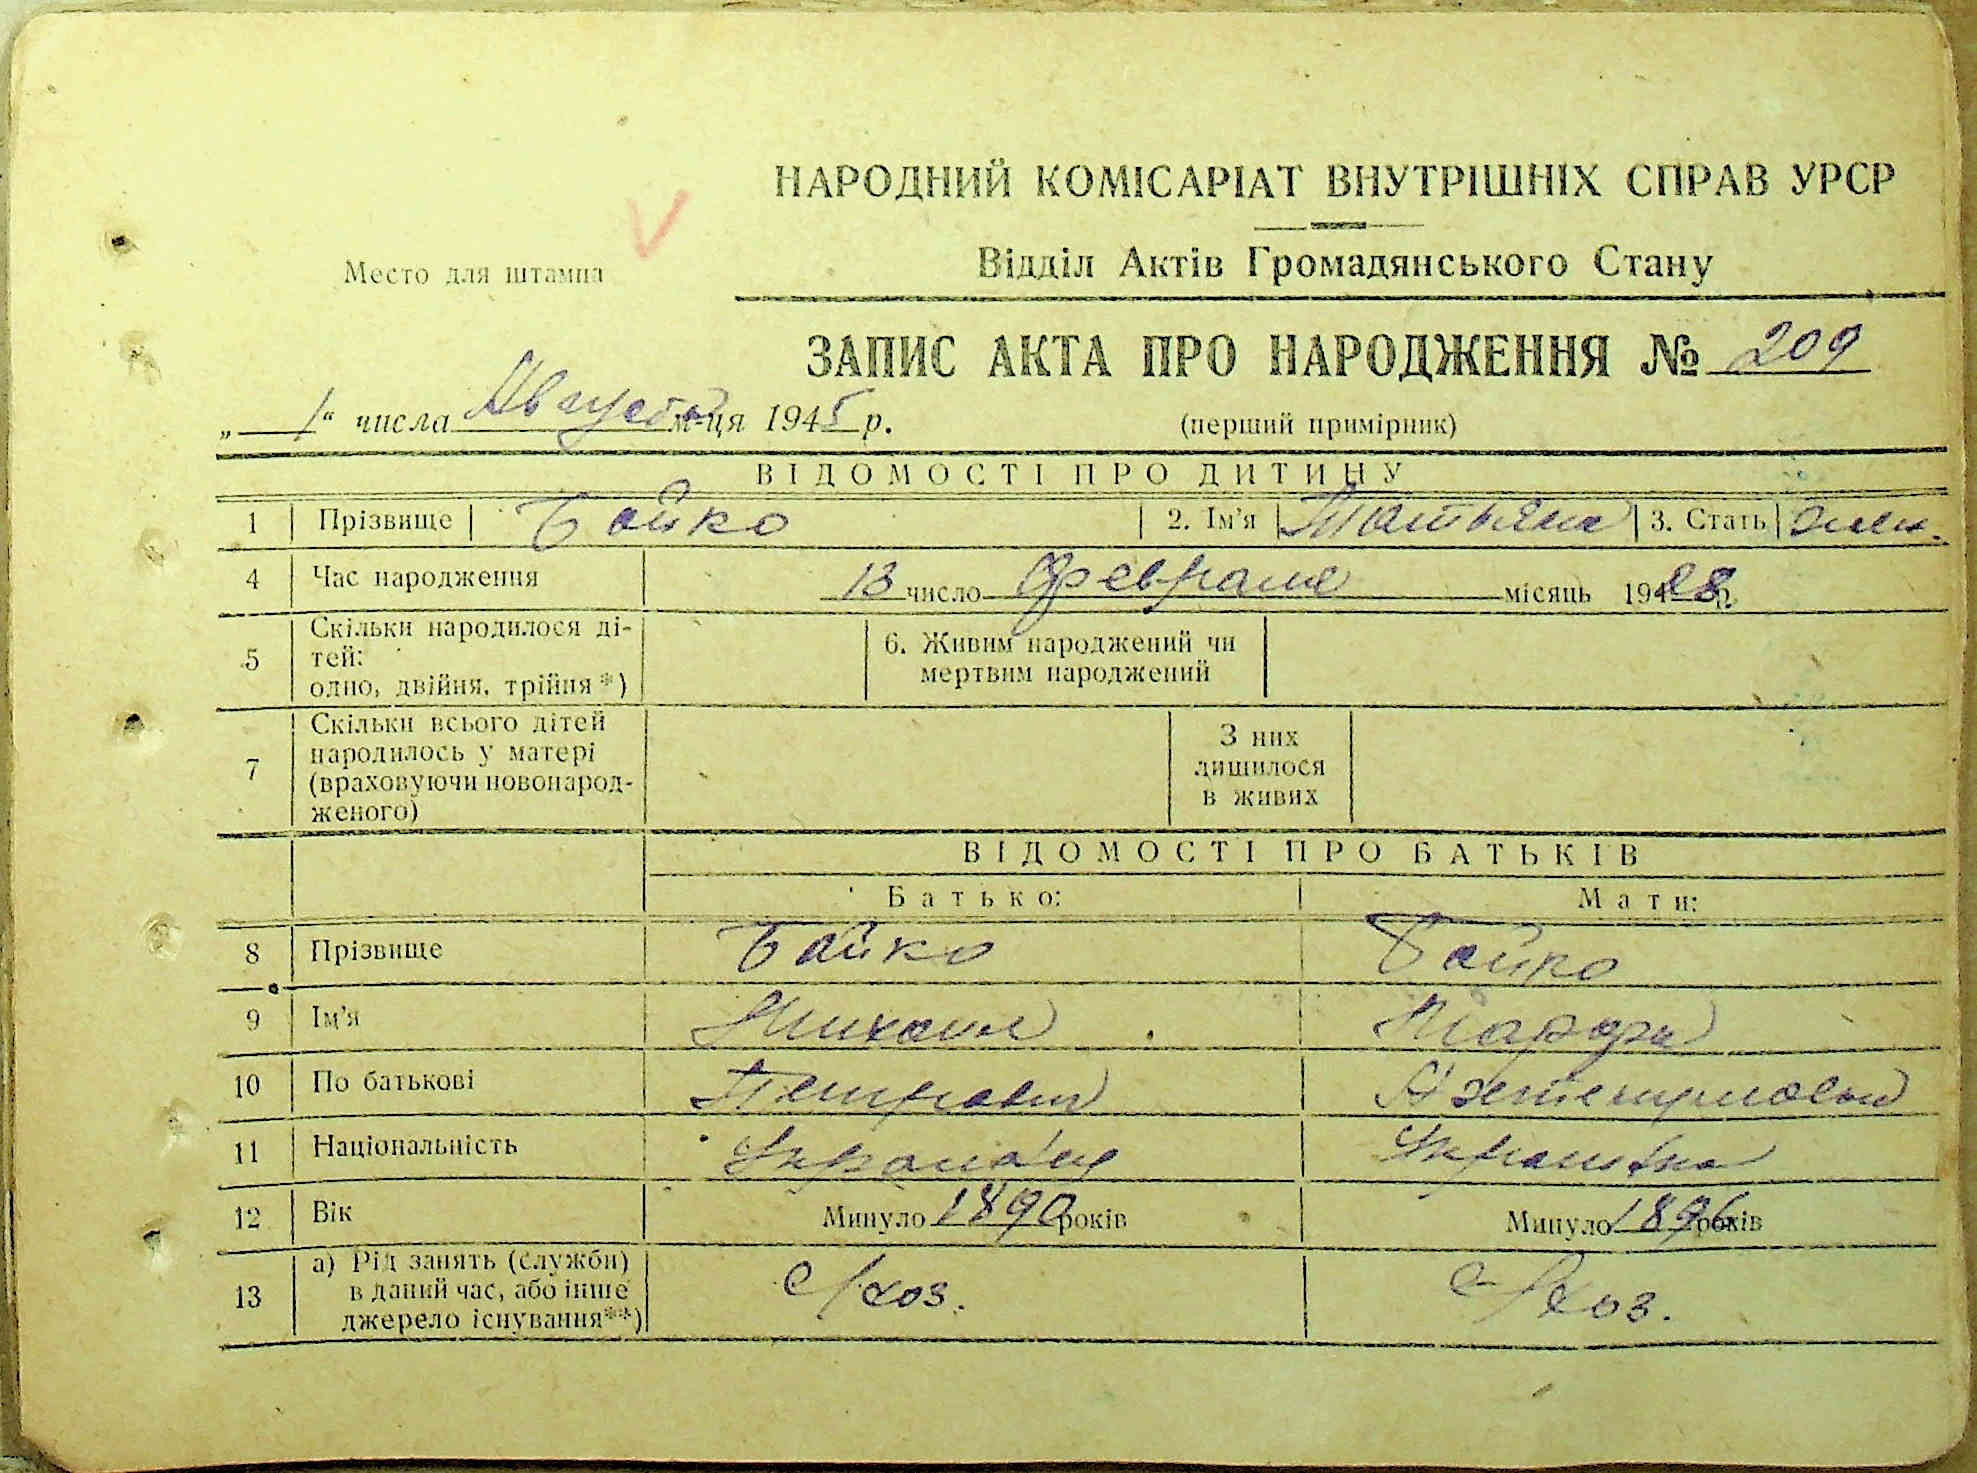 НАРОДНИЙ КОМІСАРІАТ ВНУТРІШНІХ СПРАВ УРСР
Место для штампа
Відділ Актів Громадянського Стану
ЗАПИС АКТА ПРО НАРОДЖЕННЯ № 209
„ 1 “ числа Августа м-ця 1945 р. (перший примірник)
ВІДОМОСТІ ПРО ДИТИНУ
1 Прізвище Бойко 2. Ім'я Татьяна 3. Стать жен.
4 Час народження 13 число Февраля місяць 19 28 р.
5 Скільки народилося ді-
тей:
одно, двійня, трійня*)
6. Живим народжений чи
мертвим народжений
7 Скільки всього дітей
народилось у матері
(враховуючи новонарод-
женого)
З них
лишилося
в живих
ВІДОМОСТІ ПРО БАТЬКІВ
Батько: Мати:
8 Прізвище Бойко Бойко
9 Ім'я Михаил
10 По батькові Петрович
11 Національність Украинец Украинка
12 Вік Минуло 1890 років Минуло 1896 років
13 а) Рід занять (служби)
в даний час, або інше
джерело існування**)
с/хоз. с/хоз.